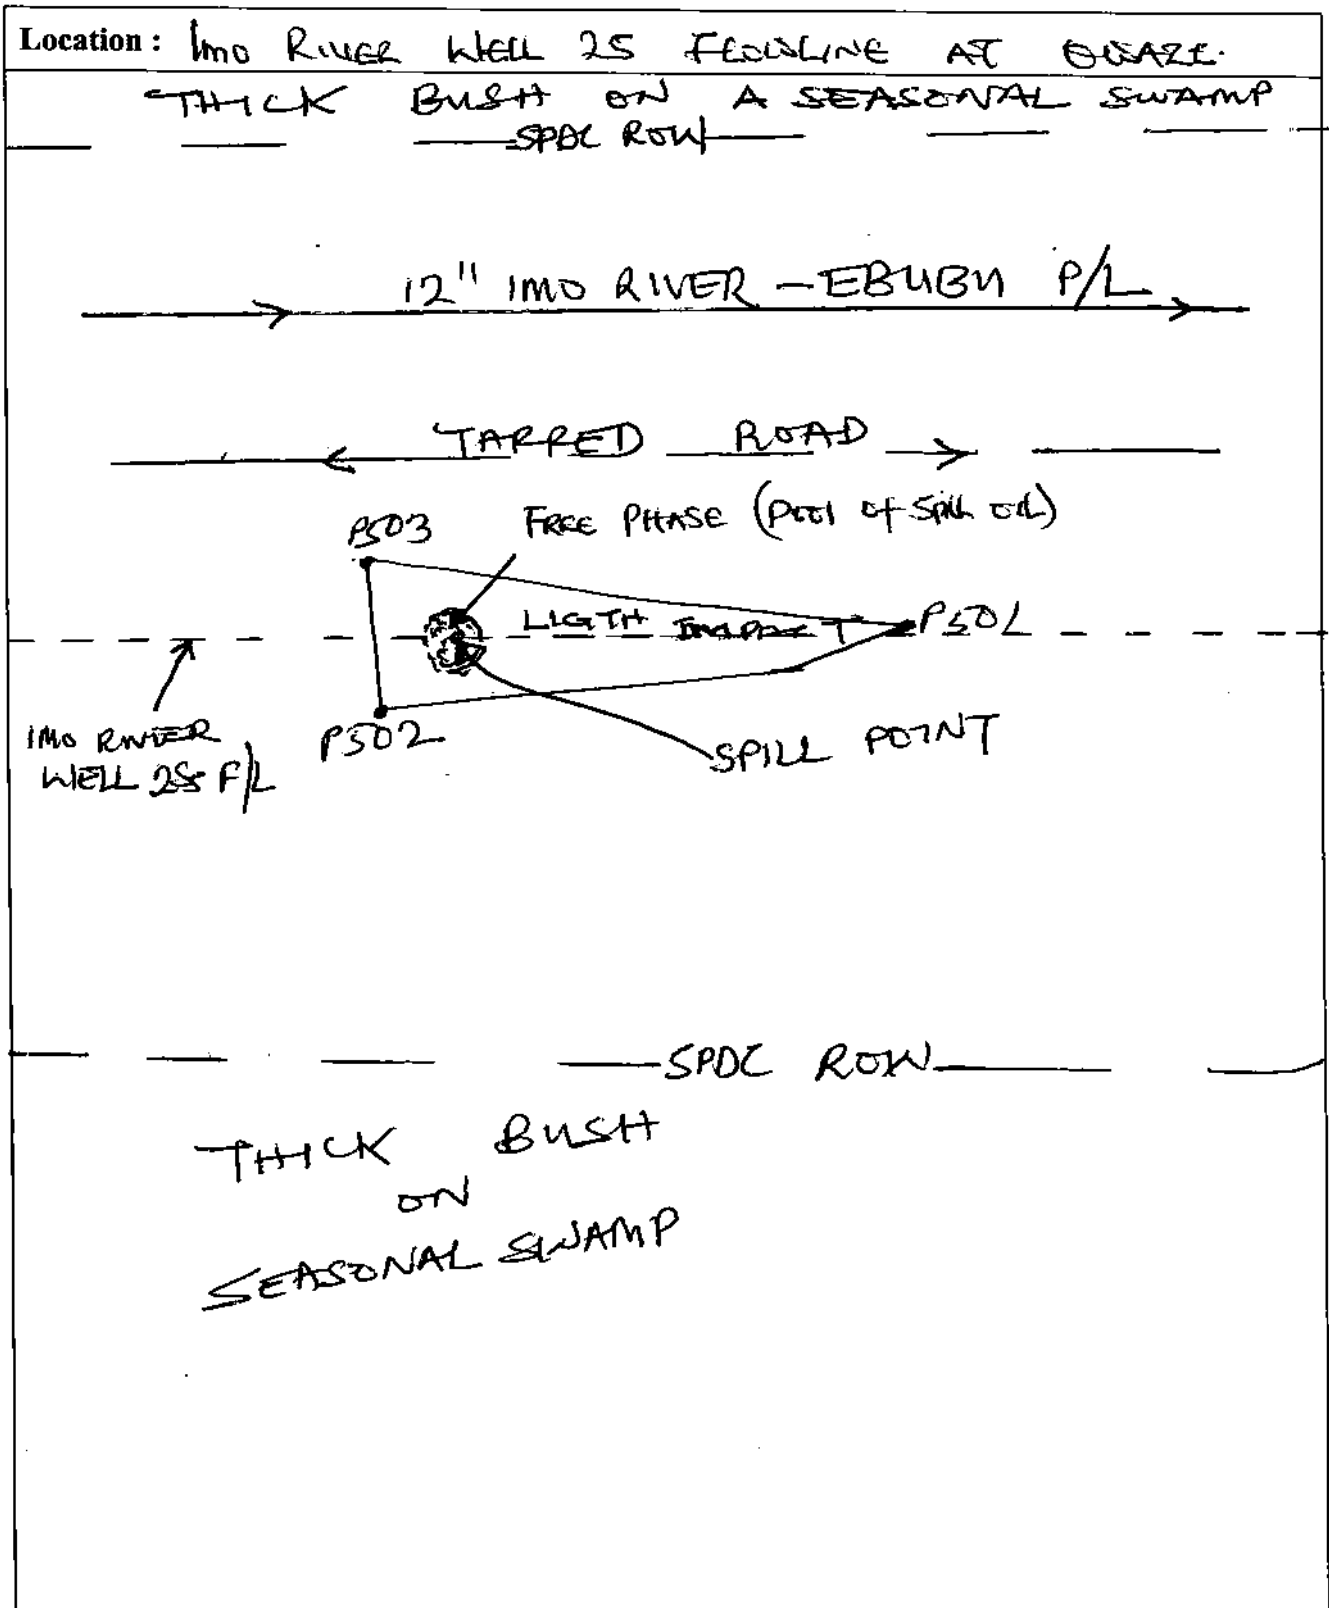 Location : Imo River Well 25 Flowline at Owaze.
THICK BUSH ON A SEASONAL SWAMP
SPDC ROW
12" IMO RIVER - EBUBU P/L
TARRED ROAD
FREE PHASE (Pool of Spill oil)
PS03
LIGTH IMPACT
PS01
IMO RIVER
WELL 25 F/L
PS02
SPILL POINT
SPDC ROW
THICK BUSH
ON
SEASONAL SWAMP